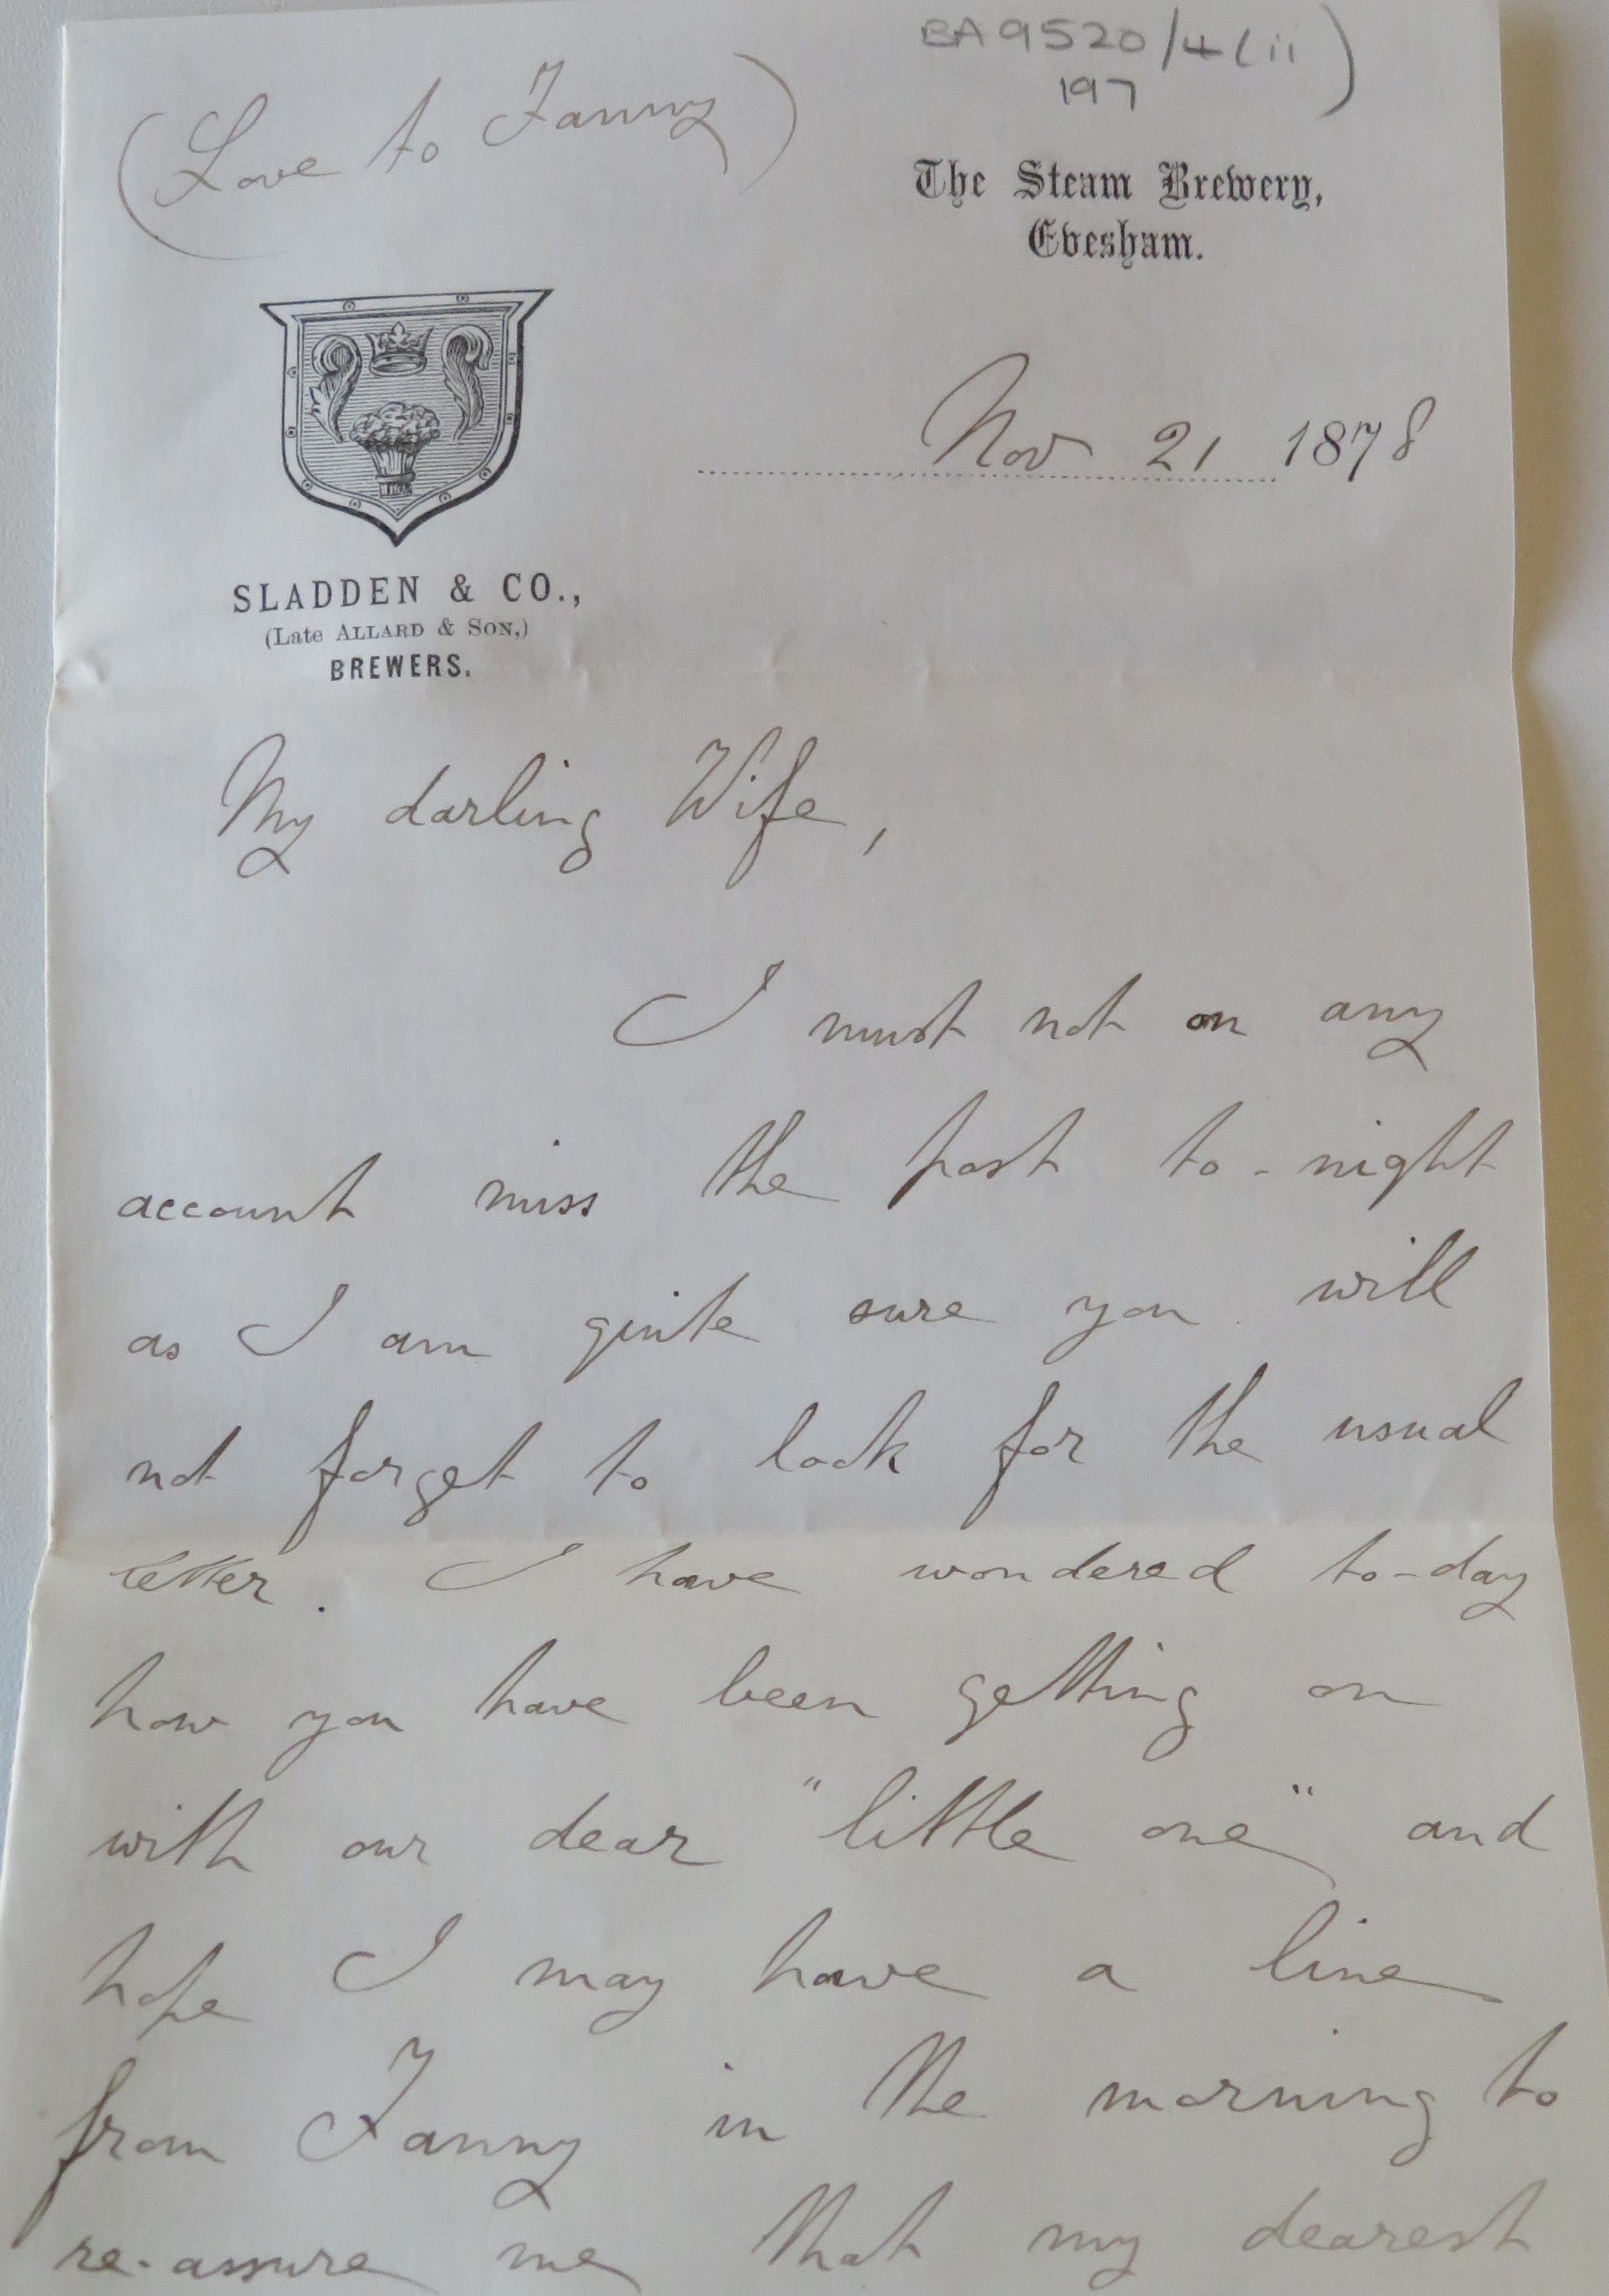 BA9520/4(ii)
197
(Love to Fanny)
The Steam Brewery,
Evesham.
Nov 21 1878
SLADDEN & CO.,
(Late ALLARD & SON,)
BREWERS.
My darling Wife,
I must not on any
account miss the post to-night
as I am quite sure you will
not forget to look for the usual
letter. I have wondered to-day
how you have been getting on
with our dear "little one" and
hope I may have a line
from Fanny in the morning to
re-assure me that my dearest